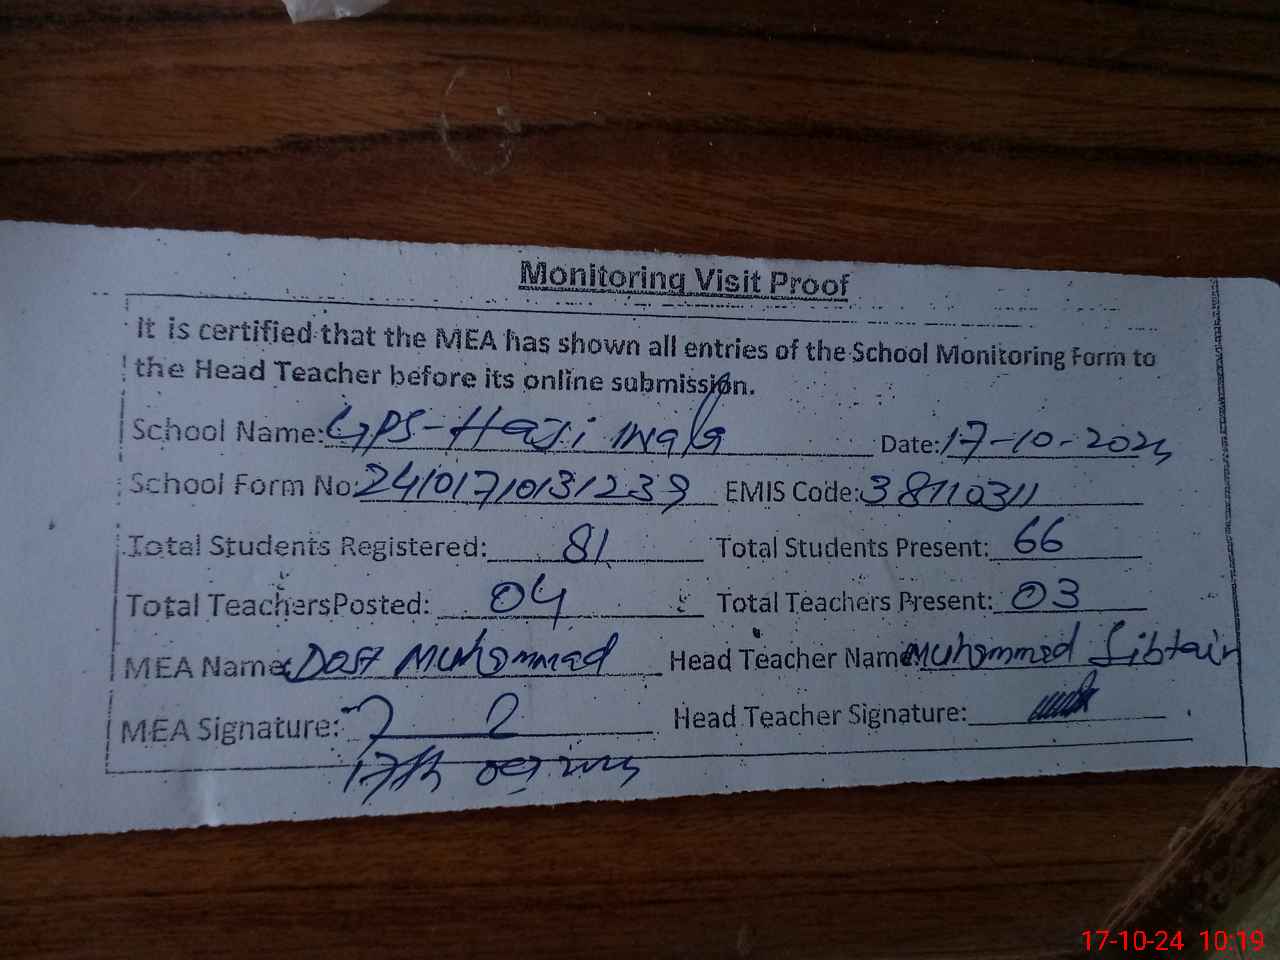 Monitoring Visit Proof
It is certified that the MEA has shown all entries of the School Monitoring Form to
the Head Teacher before its online submission.
School Name: GPS-Haji wala Date: 17-10-2024
School Form No: 24101710131239 EMIS Code: 38110311
Total Students Registered: 81 Total Students Present: 66
Total TeachersPosted: 04 Total Teachers Present: 03
MEA Name: Dost Muhammad Head Teacher Name Muhammad Sibtain
MEA Signature: Head Teacher Signature:
17th
17-10-24 10:19